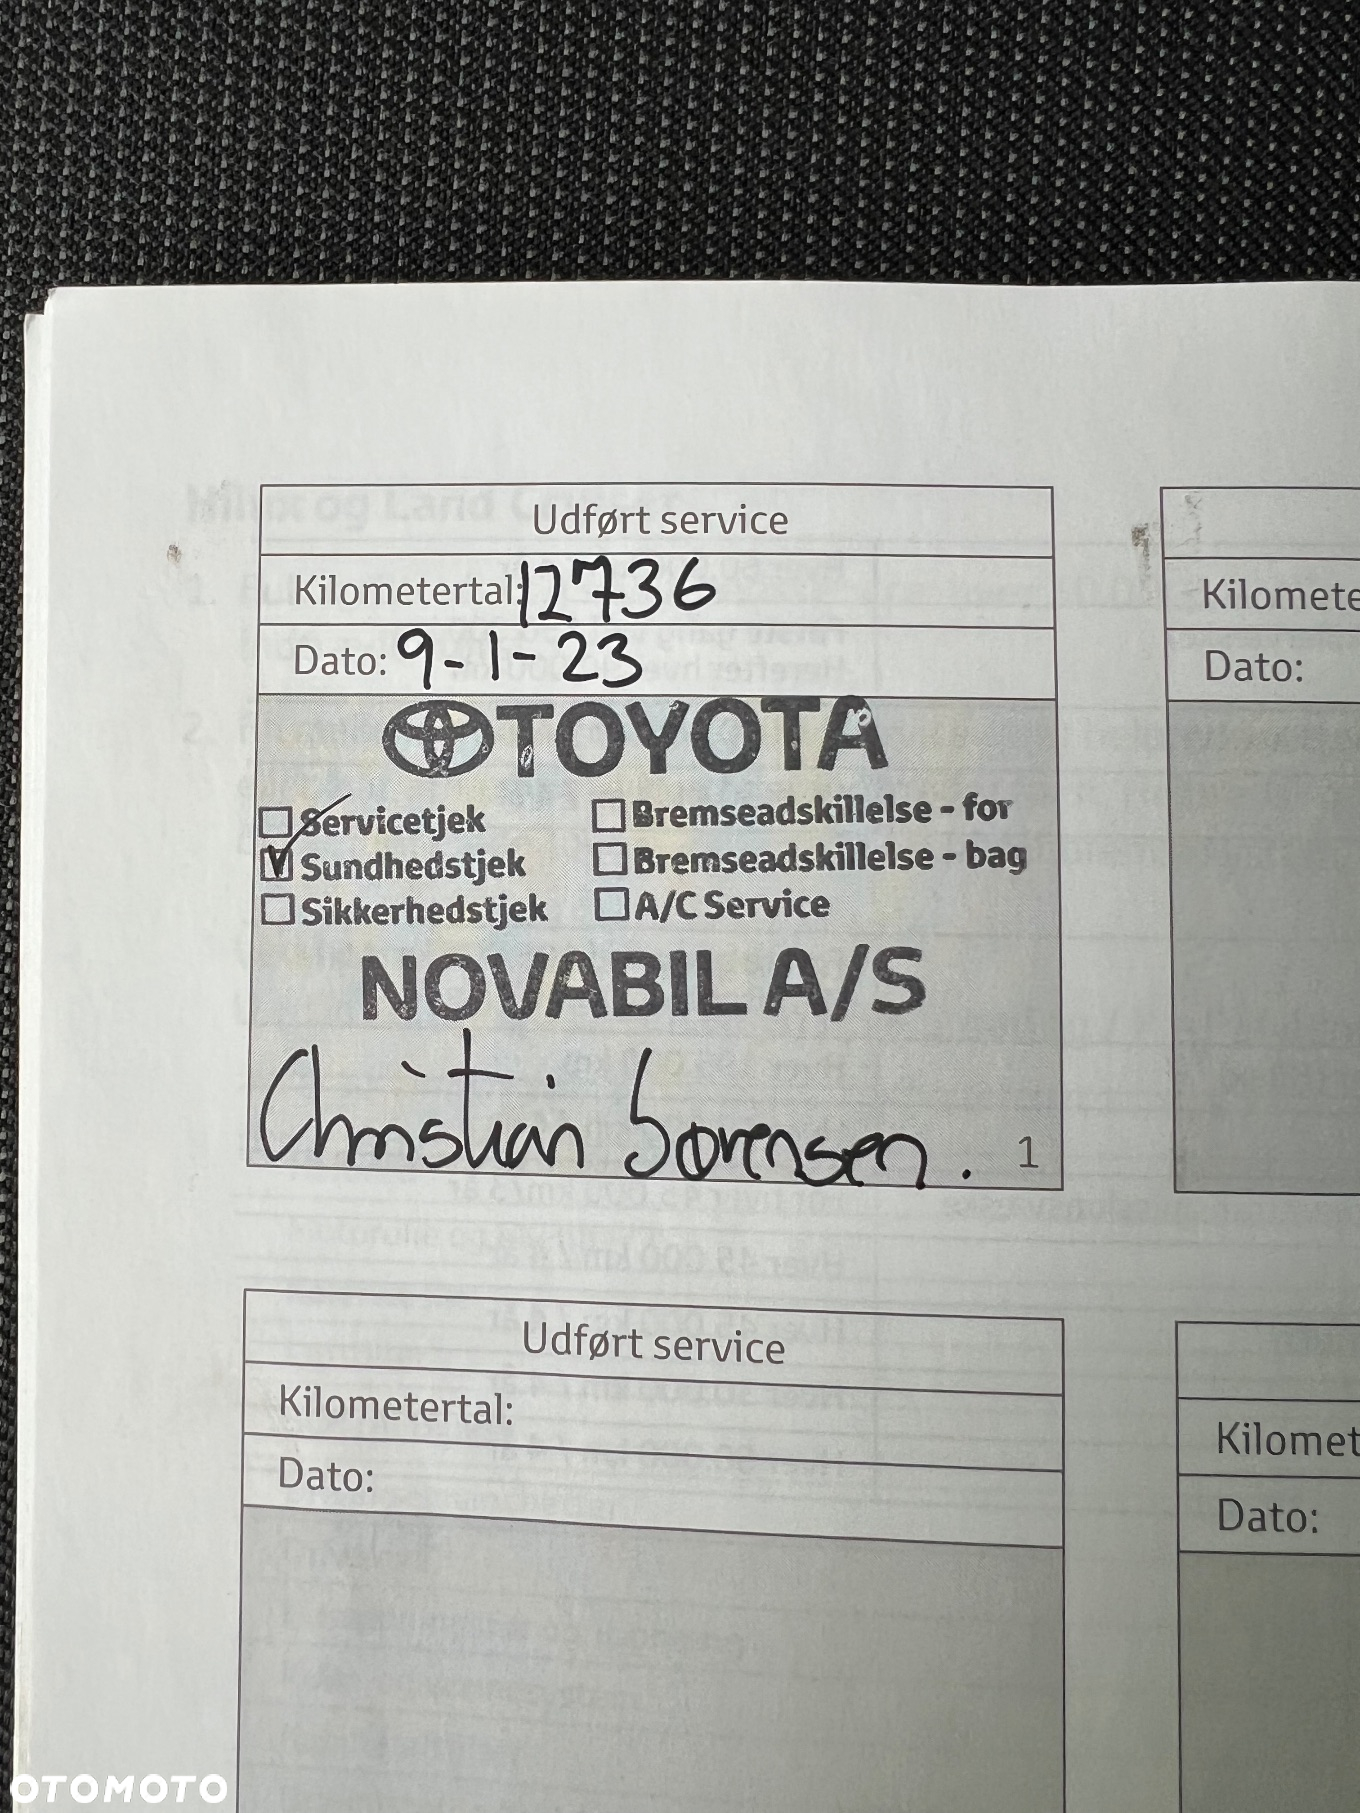 Udført service
Kilometertal: 12736
Dato: 9-1-23
TOYOTA
Servicetjek
Bremseadskillelse - for
Sundhedstjek
Bremseadskillelse - bag
Sikkerhedstjek
A/C Service
NOVABIL A/S
Christian Sørensen.
1
Kilomete
Dato:
Udført service
Kilometertal:
Dato:
Kilomet
Dato:
OTOMOTO